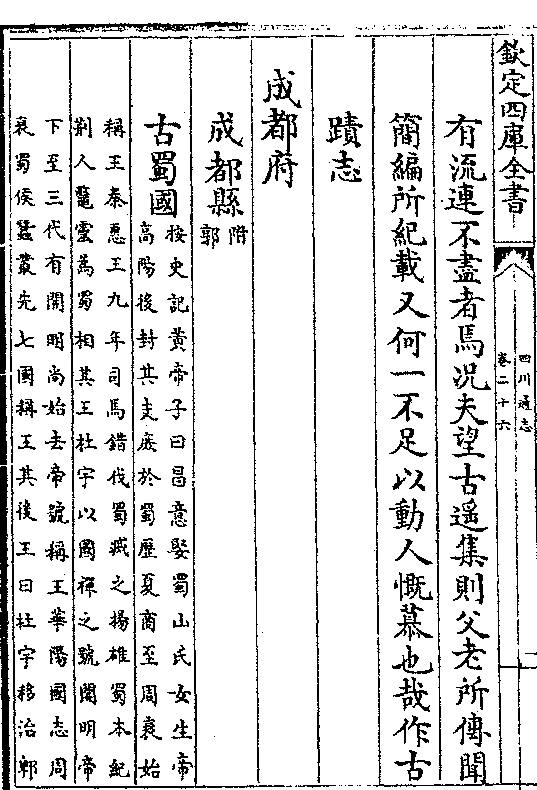 欽定四庫全書
四川通志
卷二十六
一
有流連不盡者焉况夫望古遥集則父老所傳聞
簡編所紀載又何一不足以動人慨慕也哉作古
蹟志
成都府
成都縣
附
郭
古蜀國
按史記黄帝子曰昌意娶蜀山氏女生帝
高陽後封其支庶於蜀歷夏商至周衰始
稱王秦惠王九年司馬錯伐蜀滅之揚雄蜀本紀
荆人鼈靈為蜀相其王杜宇以國禪之號開明帝
下至三代有開明尚始去帝號稱王華陽國志周
衰蜀侯蠶叢先七國稱王其後王曰杜宇移治郫